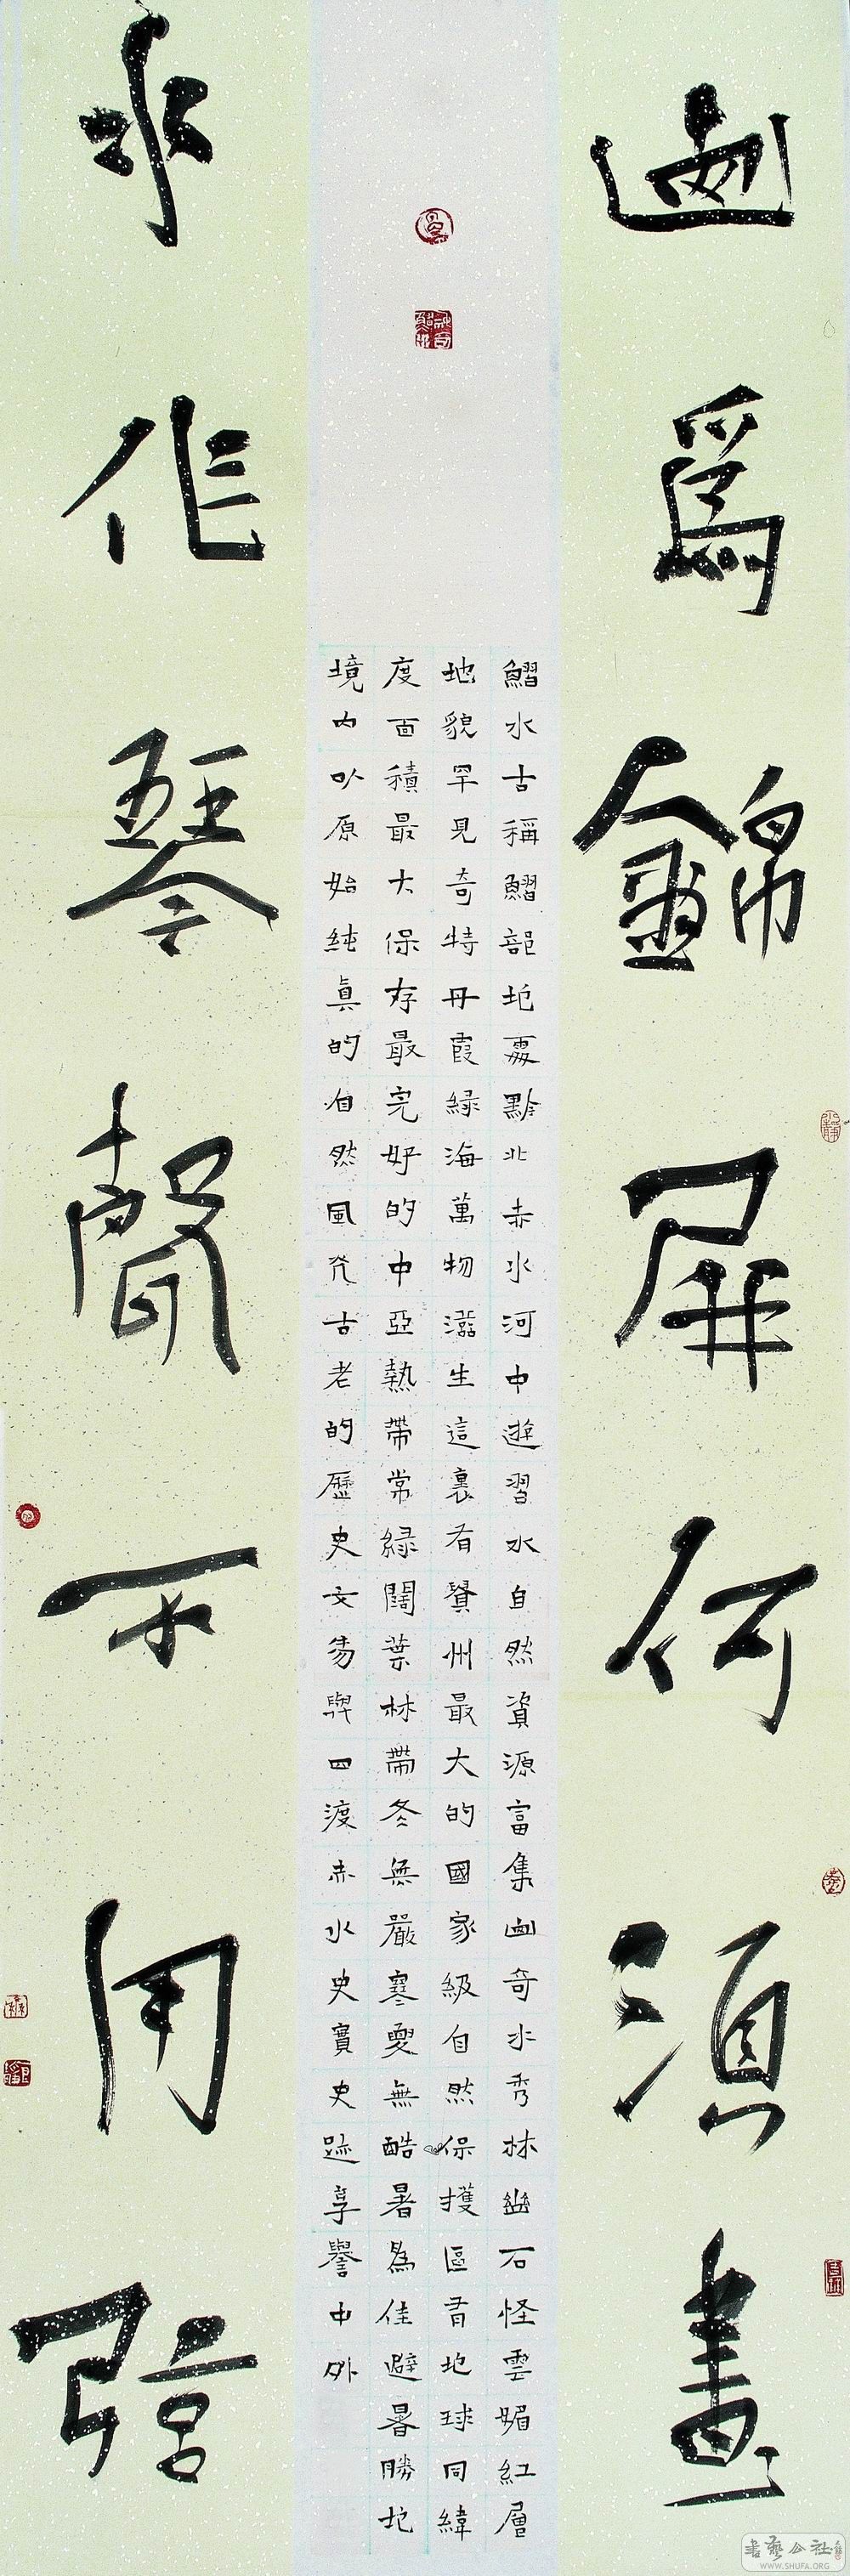 山為錦屏何須畫
鰼水古稱鰼部地處黔北赤水河中遊習水自然資源富集山奇水秀林幽石怪雲媚紅層
地貌罕見奇特丹霞緑海萬物滋生這裏有貴州最大的國家級自然保護區有地球同緯
度面積最大保存最完好的中亞熱帶常緑闊葉林帶冬無嚴寒夏無酷暑為佳避暑勝地
境内以原始純真的自然風光古老的歷史文物與四渡赤水史實史跡享譽中外
水作琴聲不用弦
書藝公社
WWW.SHUFA.ORG